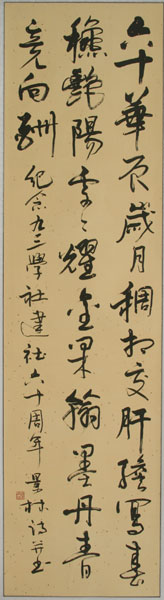 六十華年歲月稠相交肝膽寫春
穐艷陽季々耀金果翰墨丹青
竟向酬 紀念九三學社建社六十周年 景林詩并書